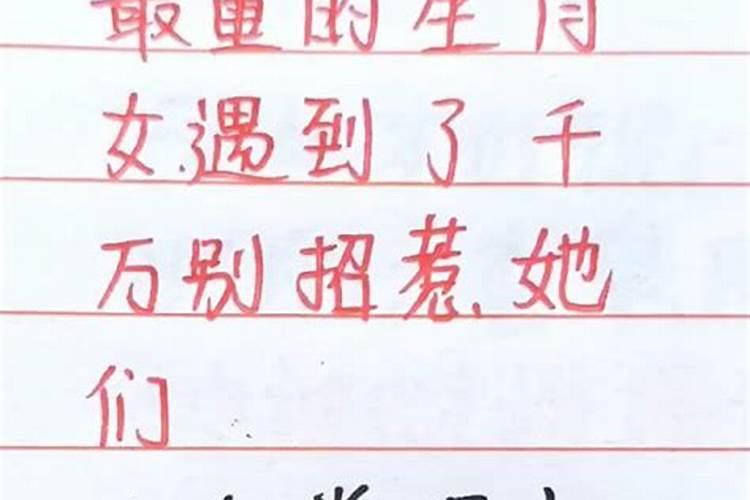 最重的生肖
女遇到了千
万别招惹她
们